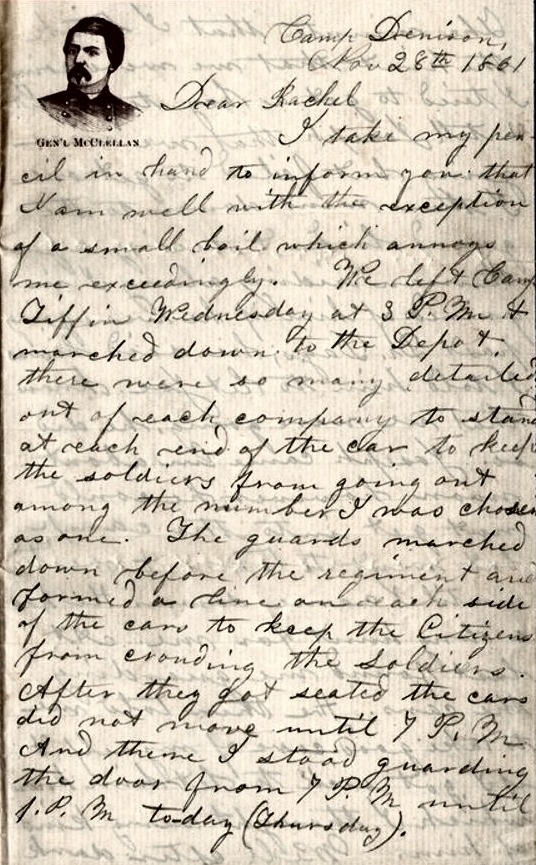 Camp Denison,
Nov 28th 1861
GEN'L McCLELLAN.
Dear Rachel
I take my pen-
cil in hand to inform you that
I am well with the exception
of a small boil which annoys
me exceedingly. We left Camp
Tiffin Wednesday at 3 P.M. &
marched down to the Depot.
there were so many detailed
out of each company to stand
at each end of the car to keep
the soldiers from going out
among the number I was chosen
as one. The guards marched
down before the regiment and
formed a line on each side
of the cars to keep the Citizens
from crouding the soldiers.
After they got seated the cars
did not move until 7 P.M
And there I stood guarding
the door from 7 P.M until
1. P.M to-day (Thursday).